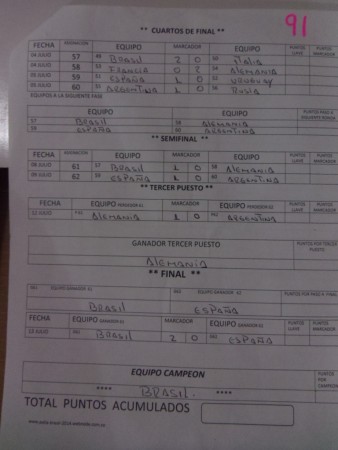 91
** CUARTOS DE FINAL **
FECHA EQUIPO MARCADOR EQUIPO PUNTOS LLAVE PUNTOS MARCADOR
04 JULIO 57 BRASIL 2 0 Italia
04 JULIO 58 FRANCIA 0 2 ALEMANIA
05 JULIO 59 ESPAÑA 1 0 URUGUAY
05 JULIO 60 ARGENTINA 1 0 RUSIA
EQUIPOS A LA SIGUIENTE FASE
EQUIPO EQUIPO
57 BRASIL 58 ALEMANIA
59 ESPAÑA 60 ARGENTINA
** SEMIFINAL **
FECHA EQUIPO MARCADOR EQUIPO PUNTOS LLAVE PUNTOS MARCADOR
08 JULIO 61 57 BRASIL 1 0 58 ALEMANIA
09 JULIO 62 59 ESPAÑA 1 0 60 ARGENTINA
** TERCER PUESTO **
FECHA EQUIPO MARCADOR EQUIPO PUNTOS LLAVE PUNTOS MARCADOR
12 JULIO ALEMANIA 1 0 ARGENTINA
GANADOR TERCER PUESTO PUNTOS POR TERCER PUESTO
ALEMANIA
** FINAL **
EQUIPO GANADOR EQUIPO GANADOR
BRASIL ESPAÑA
FECHA EQUIPO MARCADOR EQUIPO PUNTOS LLAVE PUNTOS MARCADOR
13 JULIO BRASIL 2 0 ESPAÑA
EQUIPO CAMPEON PUNTOS POR CAMPEON
**** BRASIL. ****
TOTAL PUNTOS ACUMULADOS